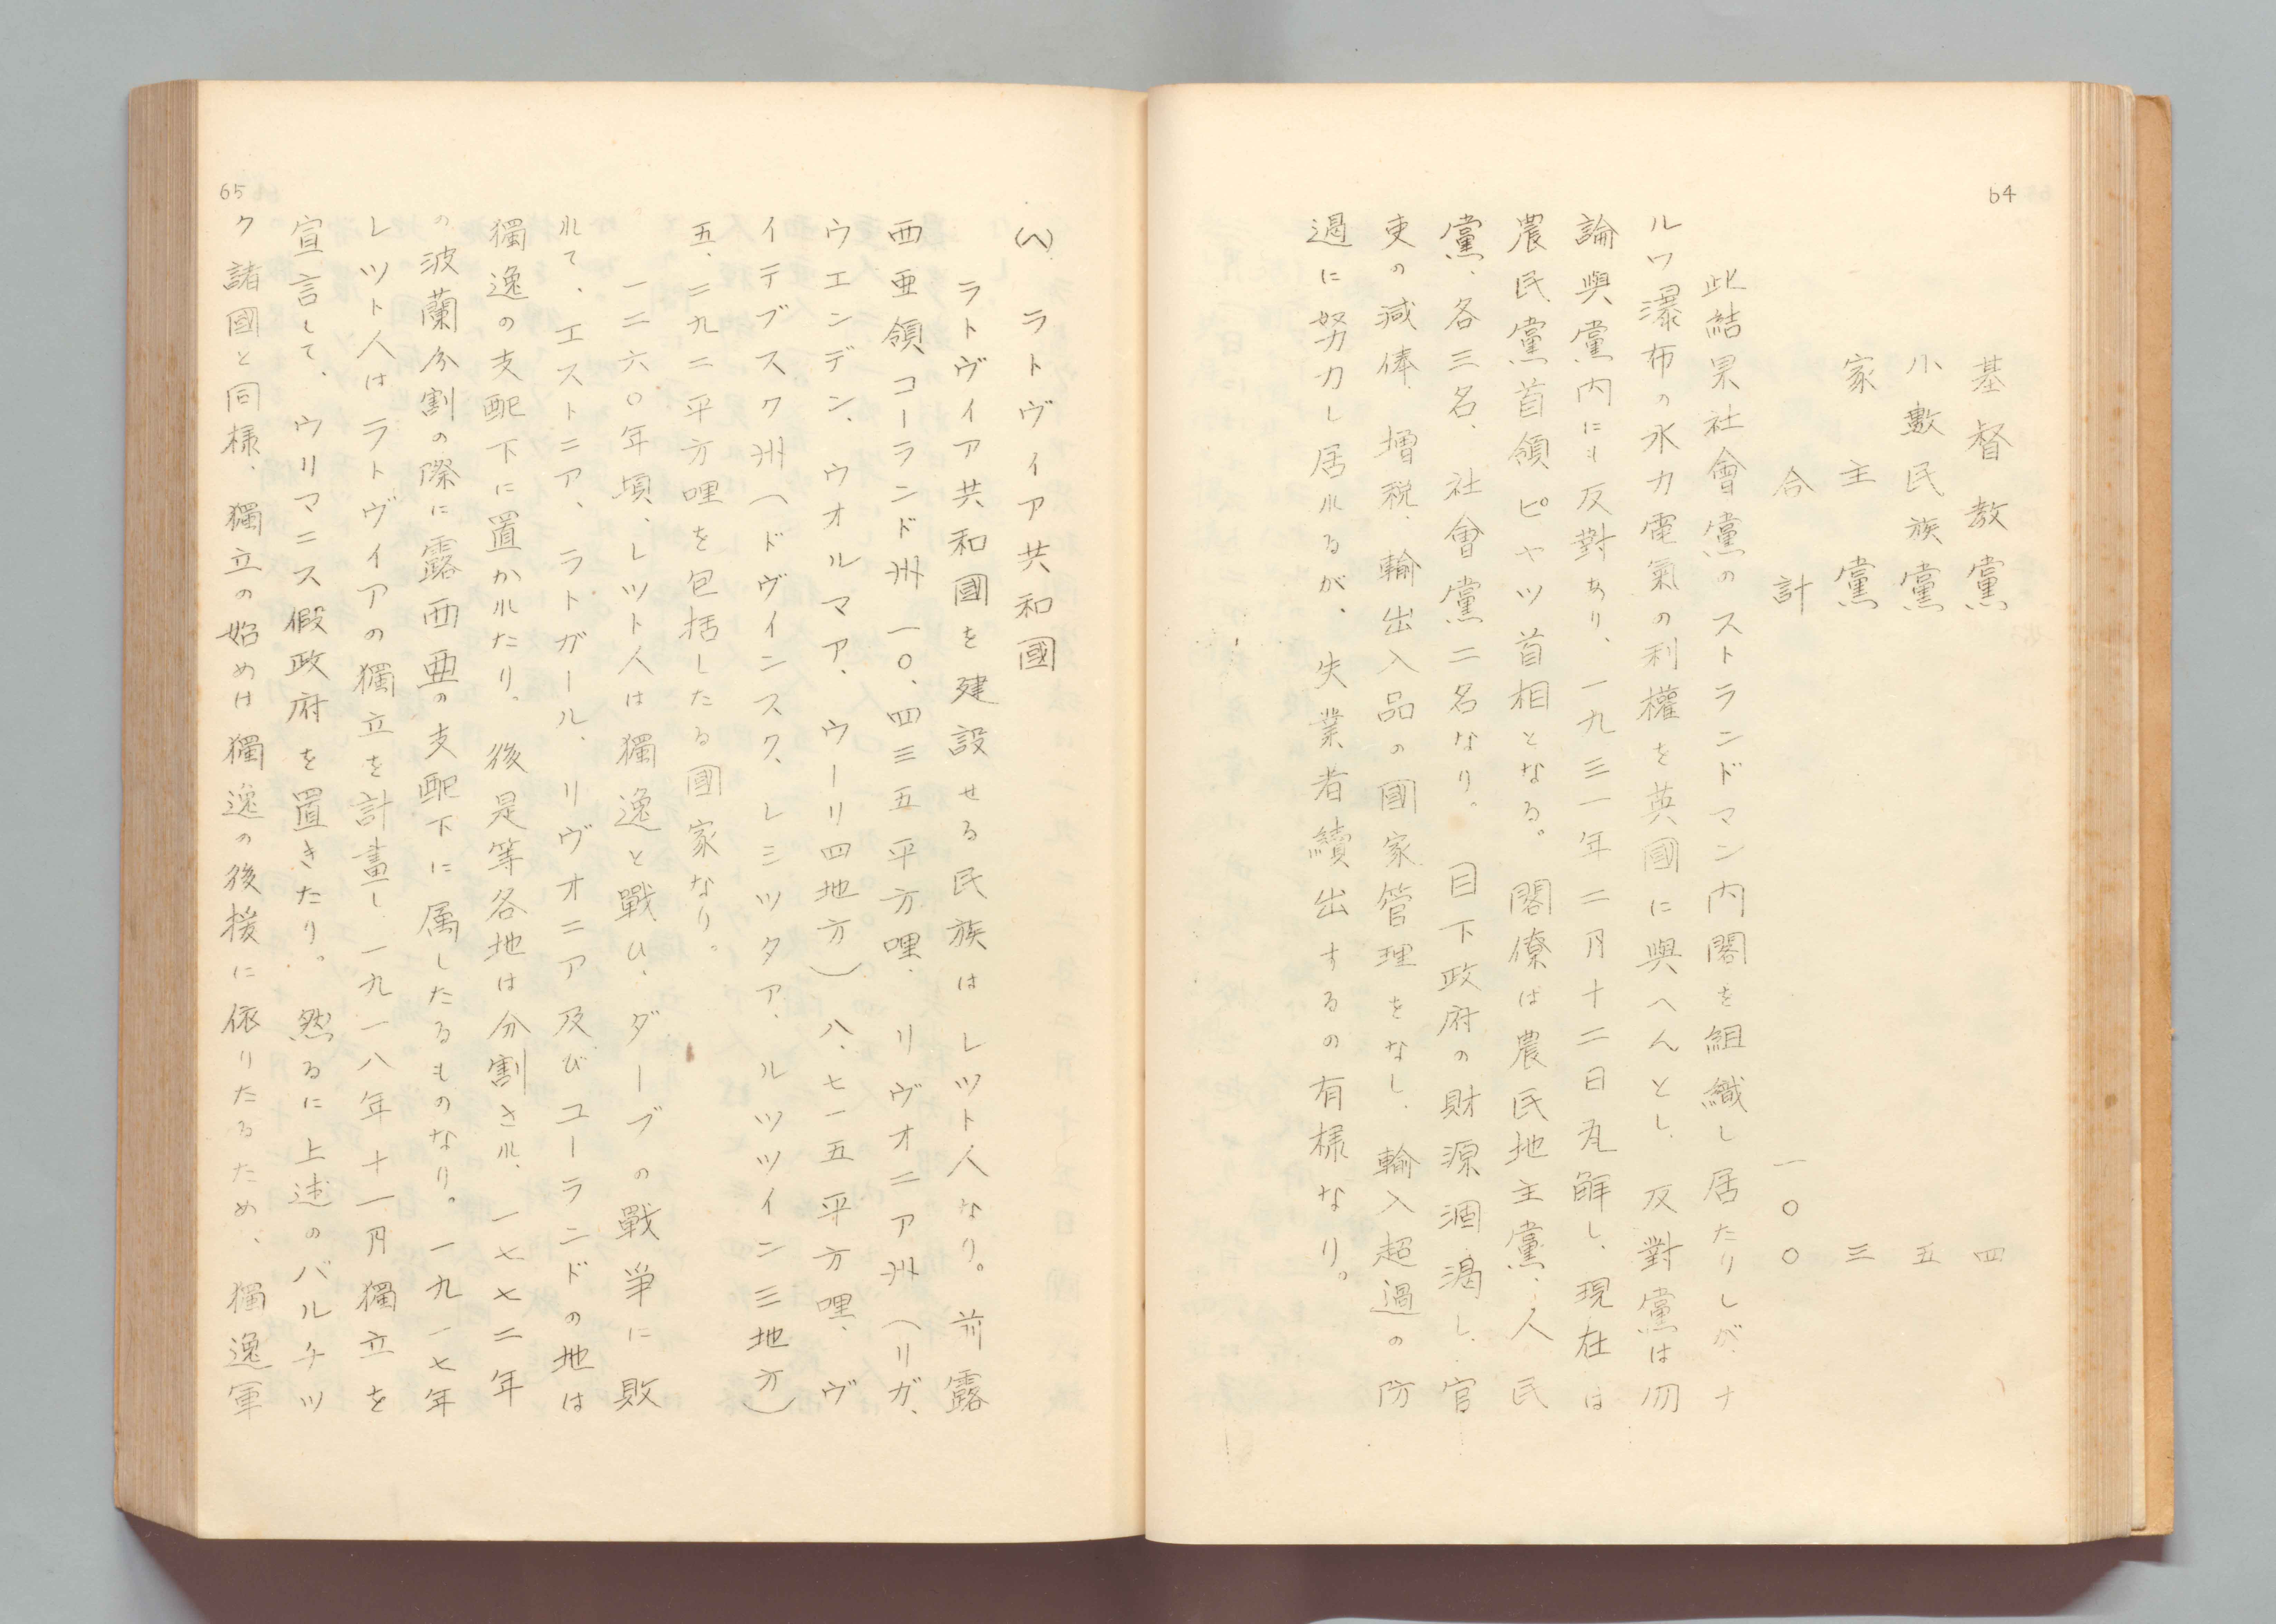 64
基督教黨 四
小數民族黨 五
家主黨 三
合計 一〇〇
此結果社會黨のストランドマン内閣を組織し居たりしが、ナ
ルワ瀑布の水力電氣の利權を英國に與へんとし、反對黨は勿
論與黨内にも反對あり、一九三一年二月十二日瓦解し、現在は
農民黨首領ピヤツ首相となる。閣僚は農民地主黨、人民
黨、各三名、社會黨二名なり。目下政府の財源涸渇し、官
吏の減俸、増税、輸出入品の國家管理をなし、輸入超過の防
遏に努力し居れるが、失業者續出するの有様なり。
(ヘ) ラトヴィア共和國
ラトヴィア共和國を建設せる民族はレツト人なり。前露
西亜領コーランド州一〇、四三五平方哩、リヴオニア州(リガ、
ウエンデン、ウオルマア、ウーリ四地方)八、七一五平方哩、ヴ
イテブスク州(ドヴインスク、レミツタア、ルツツイン三地方)
五、二九二平方哩を包括したる國家なり。
一二六〇年頃、レツト人は獨逸と戰ひ、ダーブの戰爭に敗
れて、エストニア、ラトガール、リヴオニア及びユーランドの地は
獨逸の支配下に置かれたり。後是等各地は分割され、一七七二年
の波蘭分割の際に露西亜の支配下に属したるものなり。一九一七年
レツト人はラトヴイアの獨立を計畫し、一九一八年十一月獨立を
宣言して、ウリマニス假政府を置きたり。然るに上述のバルチツ
ク諸國と同様、獨立の始めは獨逸の後援に依りたるため、獨逸軍
65